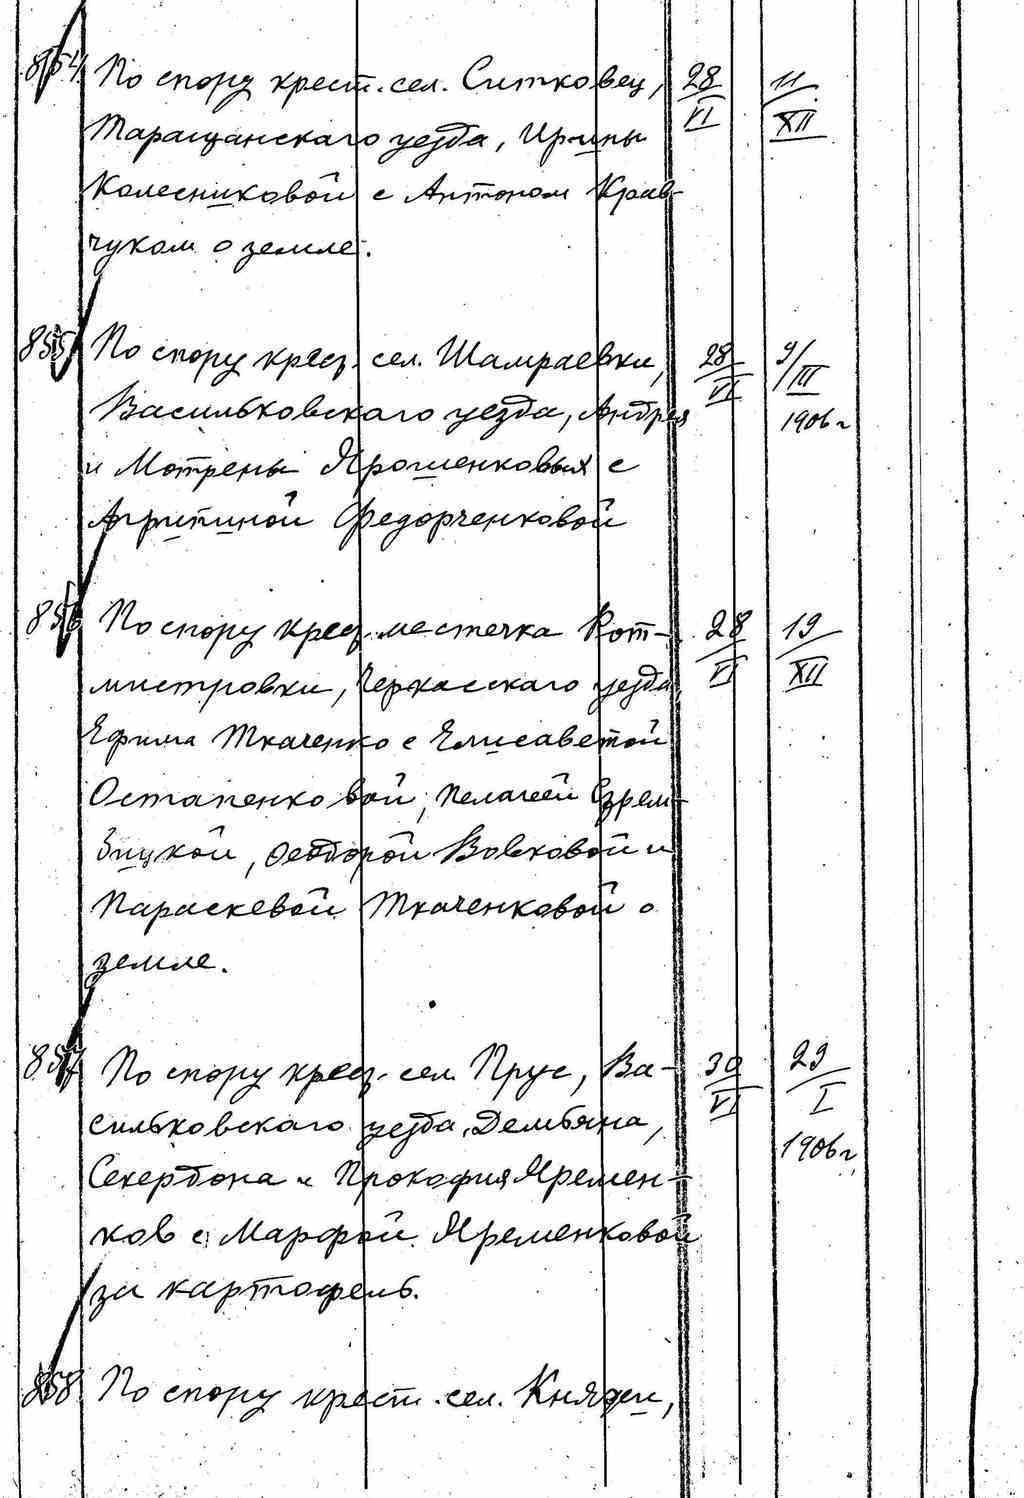 854 По спору крест. сел. Ситковец, 28/VI 11/XII
Таращанскаго уезда, Ирины
Колесниковой с Антоном Крав-
чуком о земле.
855 По спору крес. сел. Шамраевки, 28/VI 9/III
Васильковскаго уезда, Андрея 1906 г
и Мотрены Ярошенковых с
Агрипиной Федорченковой
856 По спору крес. местечка Рот- 28/VI 19/XII
мистровки, Черкасскаго уезда,
Ефима Ткаченко с Елисаветой
Остапенковой, Пелагеей
Феодорой Вовковой и
Параскевой Ткаченковой о
земле.
857 По спору крес. сел. Прус, Ва- 30/VI 29/I
сильковскаго уезда, Демьяна, 1906 г
и Прокофия Яремен-
ков с Марфой Яременковой
за картофель.
858 По спору крест. сел. Княжеи,